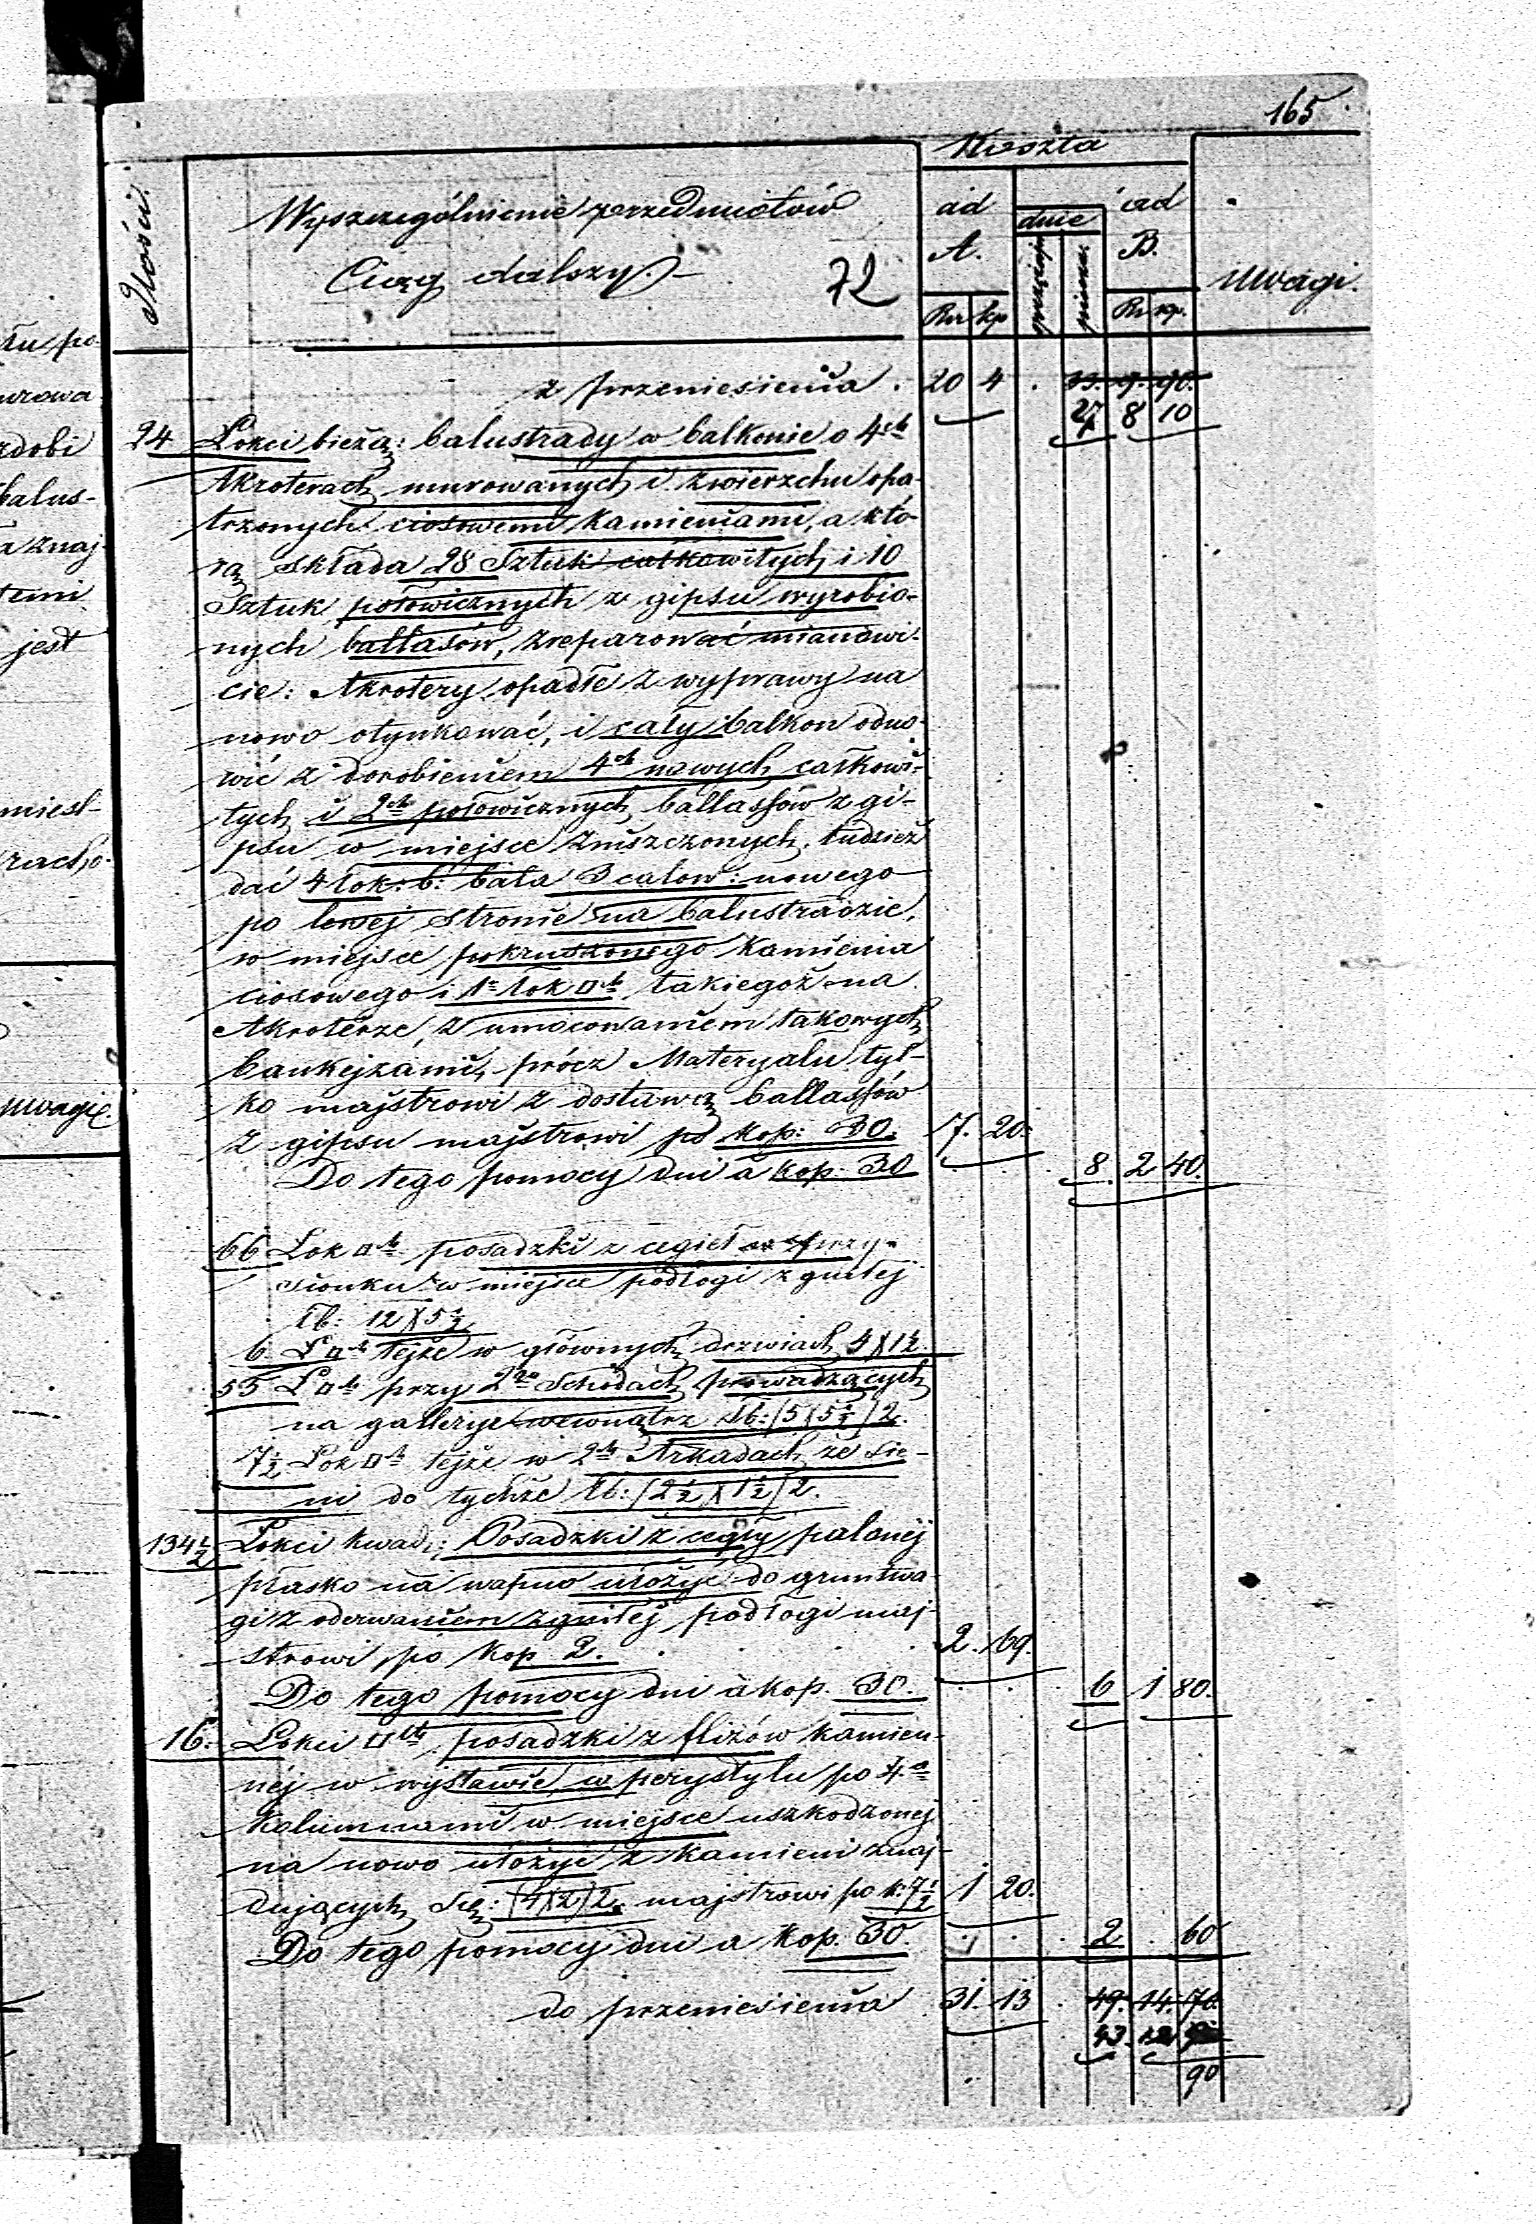 165
Koszta
Ilości
Wyszczególnienie przedmiotów
Ciąg dalszy.
72
ad A.
dnie
piesze
ad B.
Uwagi.
Rs kp
Rs kp.
z przeniesienia . 20 4 . 33. 9. 90.
27 8 10
24 Łokci bieżą: balustrady w balkonie o 4ch
Akroterach murowanych i zwierzchu opa-
trzonych ciosowemi kamieniami, a któ-
rą składa 28 Sztuk całkowitych i 10
Sztuk połowicznych z gipsu wyrobio-
nych ballasów, zreparować mianowi-
cie: Akrotery opadłe z wyprawy na
nowo otynkować, i cały balkon odno-
wić z dorobieniem 4ch nowych całkowi-
tych i 2ch połowicznych ballassów z gi-
psu w miejsce zniszczonych, tudzież
dać 4 łok: b: bala 3 calow: nowego
po lewej stronie na balustradzie,
w miejsce pokruszonego kamienia
ciosowego i 1n łok □ch takiegoż na
Akroterze, z umocowaniem takowych
bankejzami, prócz Materyału tyl-
ko majstrowi z dostawą ballassów
z gipsu majstrowi po kop: 30. 7. 20.
Do tego pomocy dni à kop. 30 8. 2 40.
66 Łok □ch posadzki z cegieł w przy-
sionku w miejsce podłogi zgniłej
12 X 5½
6 Ł □ch tejże w głównych drzwiach 4 X 1½.
55 Ł □ch przy 2ch Schodach prowadzących
na galleryę wewnątrz (5 X 5½) 2.
7½ Łok □ch tejże w 2ch Arkadach ze sie-
ni do tychże (2½ X 1½) 2.
134½ Łokci kwad: Posadzki z cegły palonej
płasko na wapno ułożyć do gruntwa-
gi z oderwaniem zgniłej podłogi maj-
strowi, po kop 2. 2. 69.
Do tego pomocy dni à kop. 30. 6 1 80.
16. Łokci □ch posadzki z flizów kamien-
nej w wystawie w perystylu po 4.
Kolumnami w miejsce uszkodzonej
na nowo ułożyć z kamieni znaj-
dujących się: (4 X 2) 2. majstrowi po k: 7½ 1 20.
Do tego pomocy dni a kop. 30. 2 . 60
do przeniesienia 31. 13 . 49. 14. 70.
43. 12
90